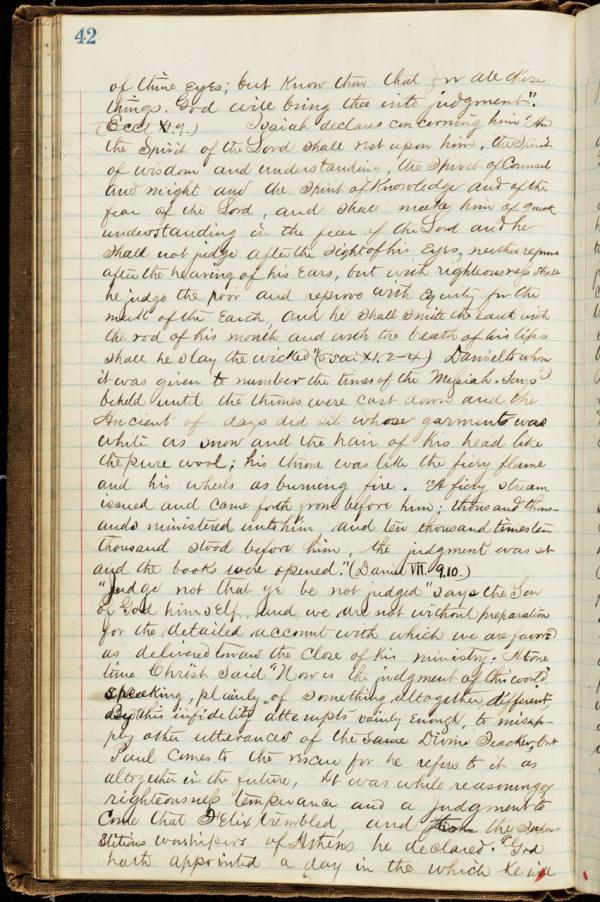 42
of thine eyes; but know thou that for all these
things God will bring thee into judgment".
(Eccl XI.9.) Isaiah declares concerning him "And
the Spirit of the Lord shall rest upon him, the Spirit
of wisdom and understanding, the Spirit of Counsel
and might and the Spirit of Knowledge and of the
fear of the Lord, and shall make him of quick
understanding in the fear of the Lord and he
shall not judge after the sight of his Eyes, neither reprove
after the hearing of his Ears, but with righteousness shall
he judge the poor and reprove with Equity for the
meek of the Earth, and he shall smite the earth with
the rod of his mouth and with the breath of his lips
shall he slay the wicked" (Isai XI, 2-4) Daniel to whom
it was given to number the times of the Messiah says "I
beheld until the thrones were cast down and the
Ancient of days did sit whose garment was
white as snow and the hair of his head like
the pure wool; his throne was like the fiery flame
and his wheels as burning fire. "A fiery stream
issued and came forth from before him; thousand thous-
ands ministered unto him and ten thousand times ten
thousand stood before him, the judgment was set
and the books were opened." (Daniel VII 9.10.)
"Judge not that ye be not judged" says the Son
of God himself, and we are not without preparation
for the detailed account with which we are favored
as delivered toward the close of his ministry. At one
time Christ said "Now is the judgment of this world"
speaking, plainly, of something altogether different,
this infidelity attempts vainly enough, to misap-
ply other utterances of the same Divine Teacher, but
Paul comes to the rescue for he refers to it as
altogether in the future, It was while reasoning of
righteousness temperance and a judgment to
come that Felix trembled and the super-
stitious worshipers of Athens he declared. "God
hath appointed a day in the which he will